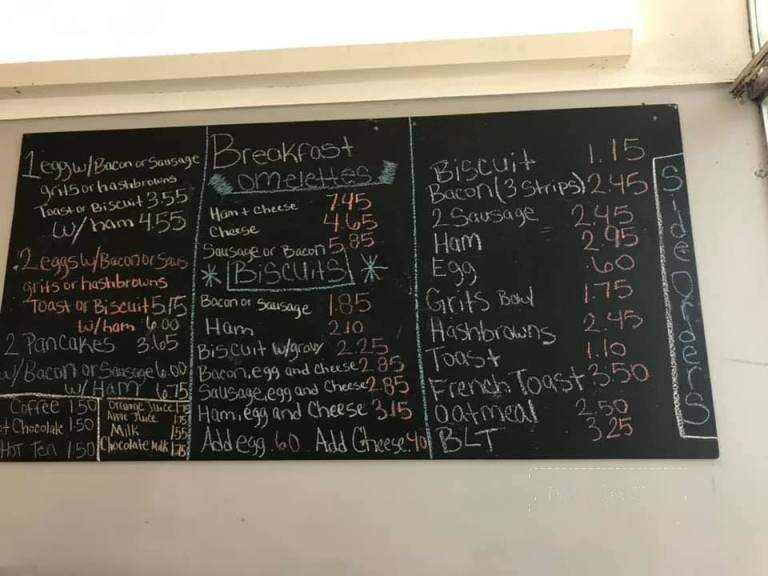 1 egg w/Bacon or Sausage
grits or hashbrowns
Toast or Biscuit 3.55
w/ ham 4.55
2 eggs w/Bacon or Saus
grits or hashbrowns
Toast or Biscuit 5.15
w/ham 6.00
2 Pancakes 3.65
w/Bacon or Sausage 6.00
w/ Ham 6.75
Coffee 1.50
t Chocolate 1.50
Hot Tea 1.50
Orange Juice 1.75
Apple Juice 1.75
Milk 1.55
Chocolate Milk 1.75
Breakfast
omelettes
Ham + Cheese 7.45
Cheese 4.65
Sausage or Bacon 5.85
* Biscuits *
Bacon or Sausage 1.85
Ham 2.10
Biscuit w/gravy 2.25
Bacon, egg and cheese 2.85
Sausage, egg and Cheese 2.85
Ham, egg and Cheese 3.15
Add egg .60 Add Cheese .40
Biscuit 1.15
Bacon (3 Strips) 2.45
2 Sausage 2.45
Ham 2.95
Egg .60
Grits Bowl 1.75
Hashbrowns 2.45
Toast 1.10
French Toast 3.50
Oatmeal 2.50
BLT 3.25
Side Orders